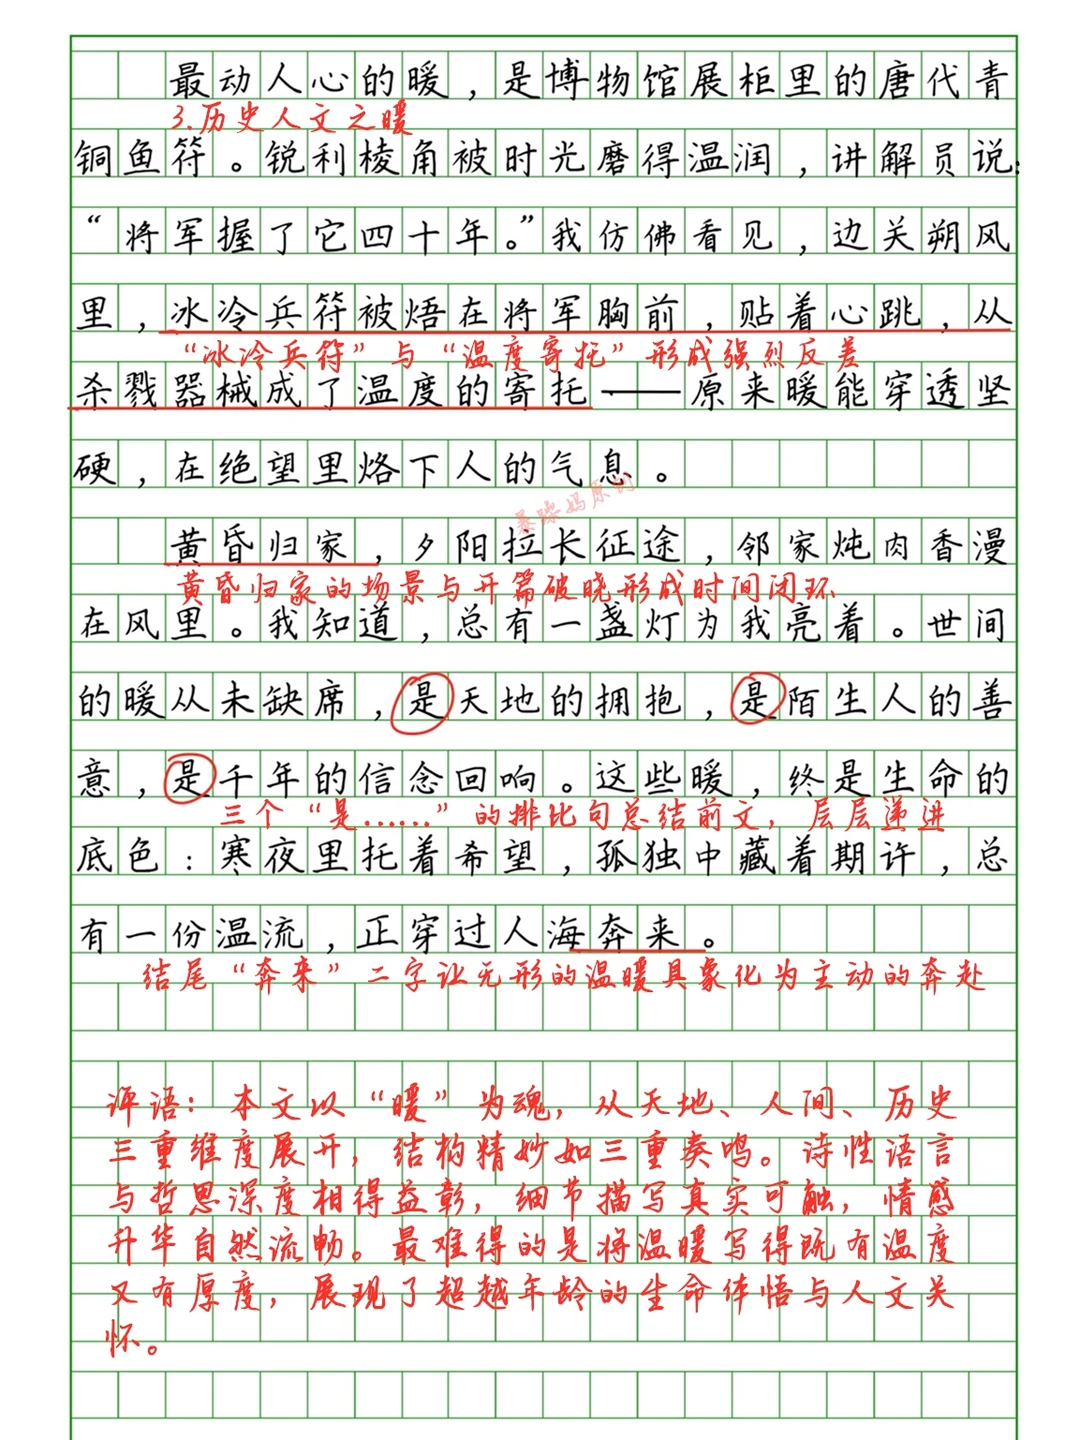 最动人心的暖，是博物馆展柜里的唐代青
3.历史人文之暖
铜鱼符。锐利棱角被时光磨得温润，讲解员说：
“将军握了它四十年。”我仿佛看见，边关朔风
里，冰冷兵符被焐在将军胸前，贴着心跳，从
“冰冷兵符”与“温度寄托”形成强烈反差
杀戮器械成了温度的寄托——原来暖能穿透坚
硬，在绝望里烙下人的气息。
暴躁妈原创
黄昏归家，夕阳拉长征途，邻家炖肉香漫
黄昏归家的场景与开篇破晓形成时间闭环
在风里。我知道，总有一盏灯为我亮着。世间
的暖从未缺席，是天地的拥抱，是陌生人的善
意，是千年的信念回响。这些暖，终是生命的
三个“是……”的排比句总结前文，层层递进
底色：寒夜里托着希望，孤独中藏着期许，总
有一份温流，正穿过人海奔来。
结尾“奔来”二字让无形的温暖具象化为主动的奔赴
评语：本文以“暖”为魂，从天地、人间、历史
三重维度展开，结构精妙如三重奏鸣。诗性语言
与哲思深度相得益彰，细节描写真实可触，情感
升华自然流畅。最难得的是将温暖写得既有温度
又有厚度，展现了超越年龄的生命体悟与人文关
怀。